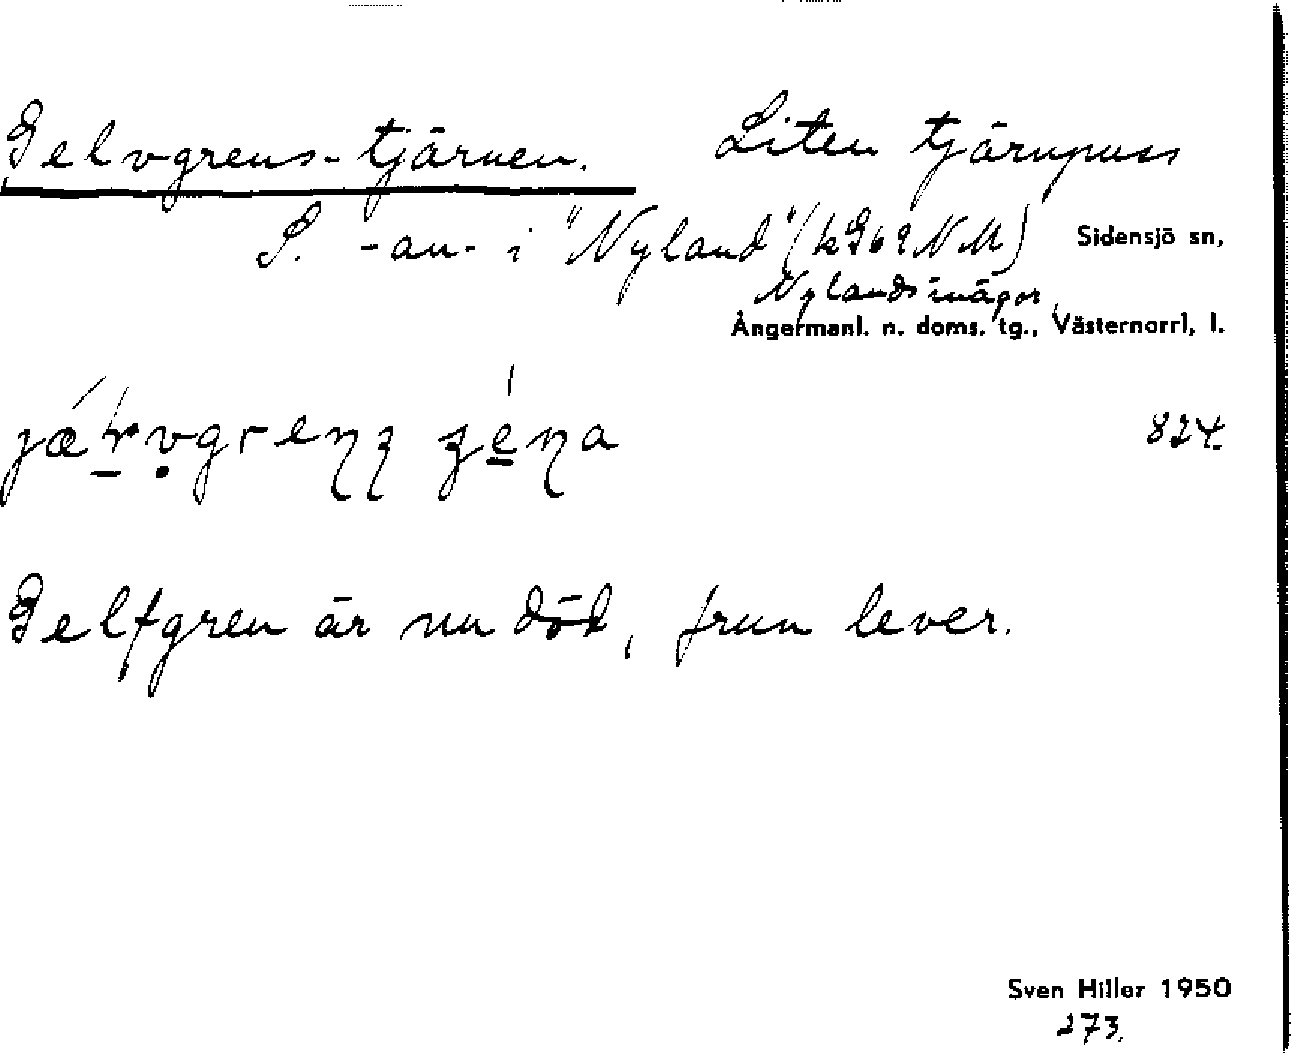 Gelvgrens-tjärnen. Liten tjärnpuss
S. -an- i "Nyland" (kG69NM) Sidensjö sn,
Nylands inägor,
Ångermanl. n. doms. tg., Västernorrl. l.
824.
Gelfgren är nu död, frun lever.
Sven Hiller 1950
273.